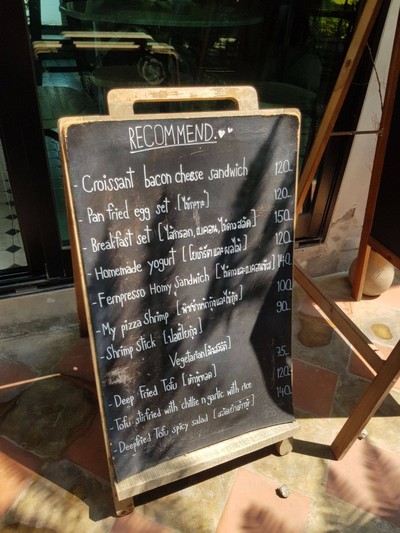 RECOMMEND.
- Croissant bacon cheese sandwich 120
- Pan fried egg set [ไข่กระทะ] 120
- Breakfast set [ไส้กรอก,เบคอน,ไข่ดาว สลัด] 150
- Homemade yogurt [โยเกิร์ต และ ผลไม้] 120
- Fernpresso Homy Sandwich 140
- My pizza Shrimp 100
- Shrimp stick [ปอเปี๊ยะกุ้ง] 90
Vegetarian
- Deep Fried Tofu [เต้าหู้ทอด] 75
- Tofu stirfried with chillie n garlic with rice 120
- Deepfried Tofu spicy salad 140